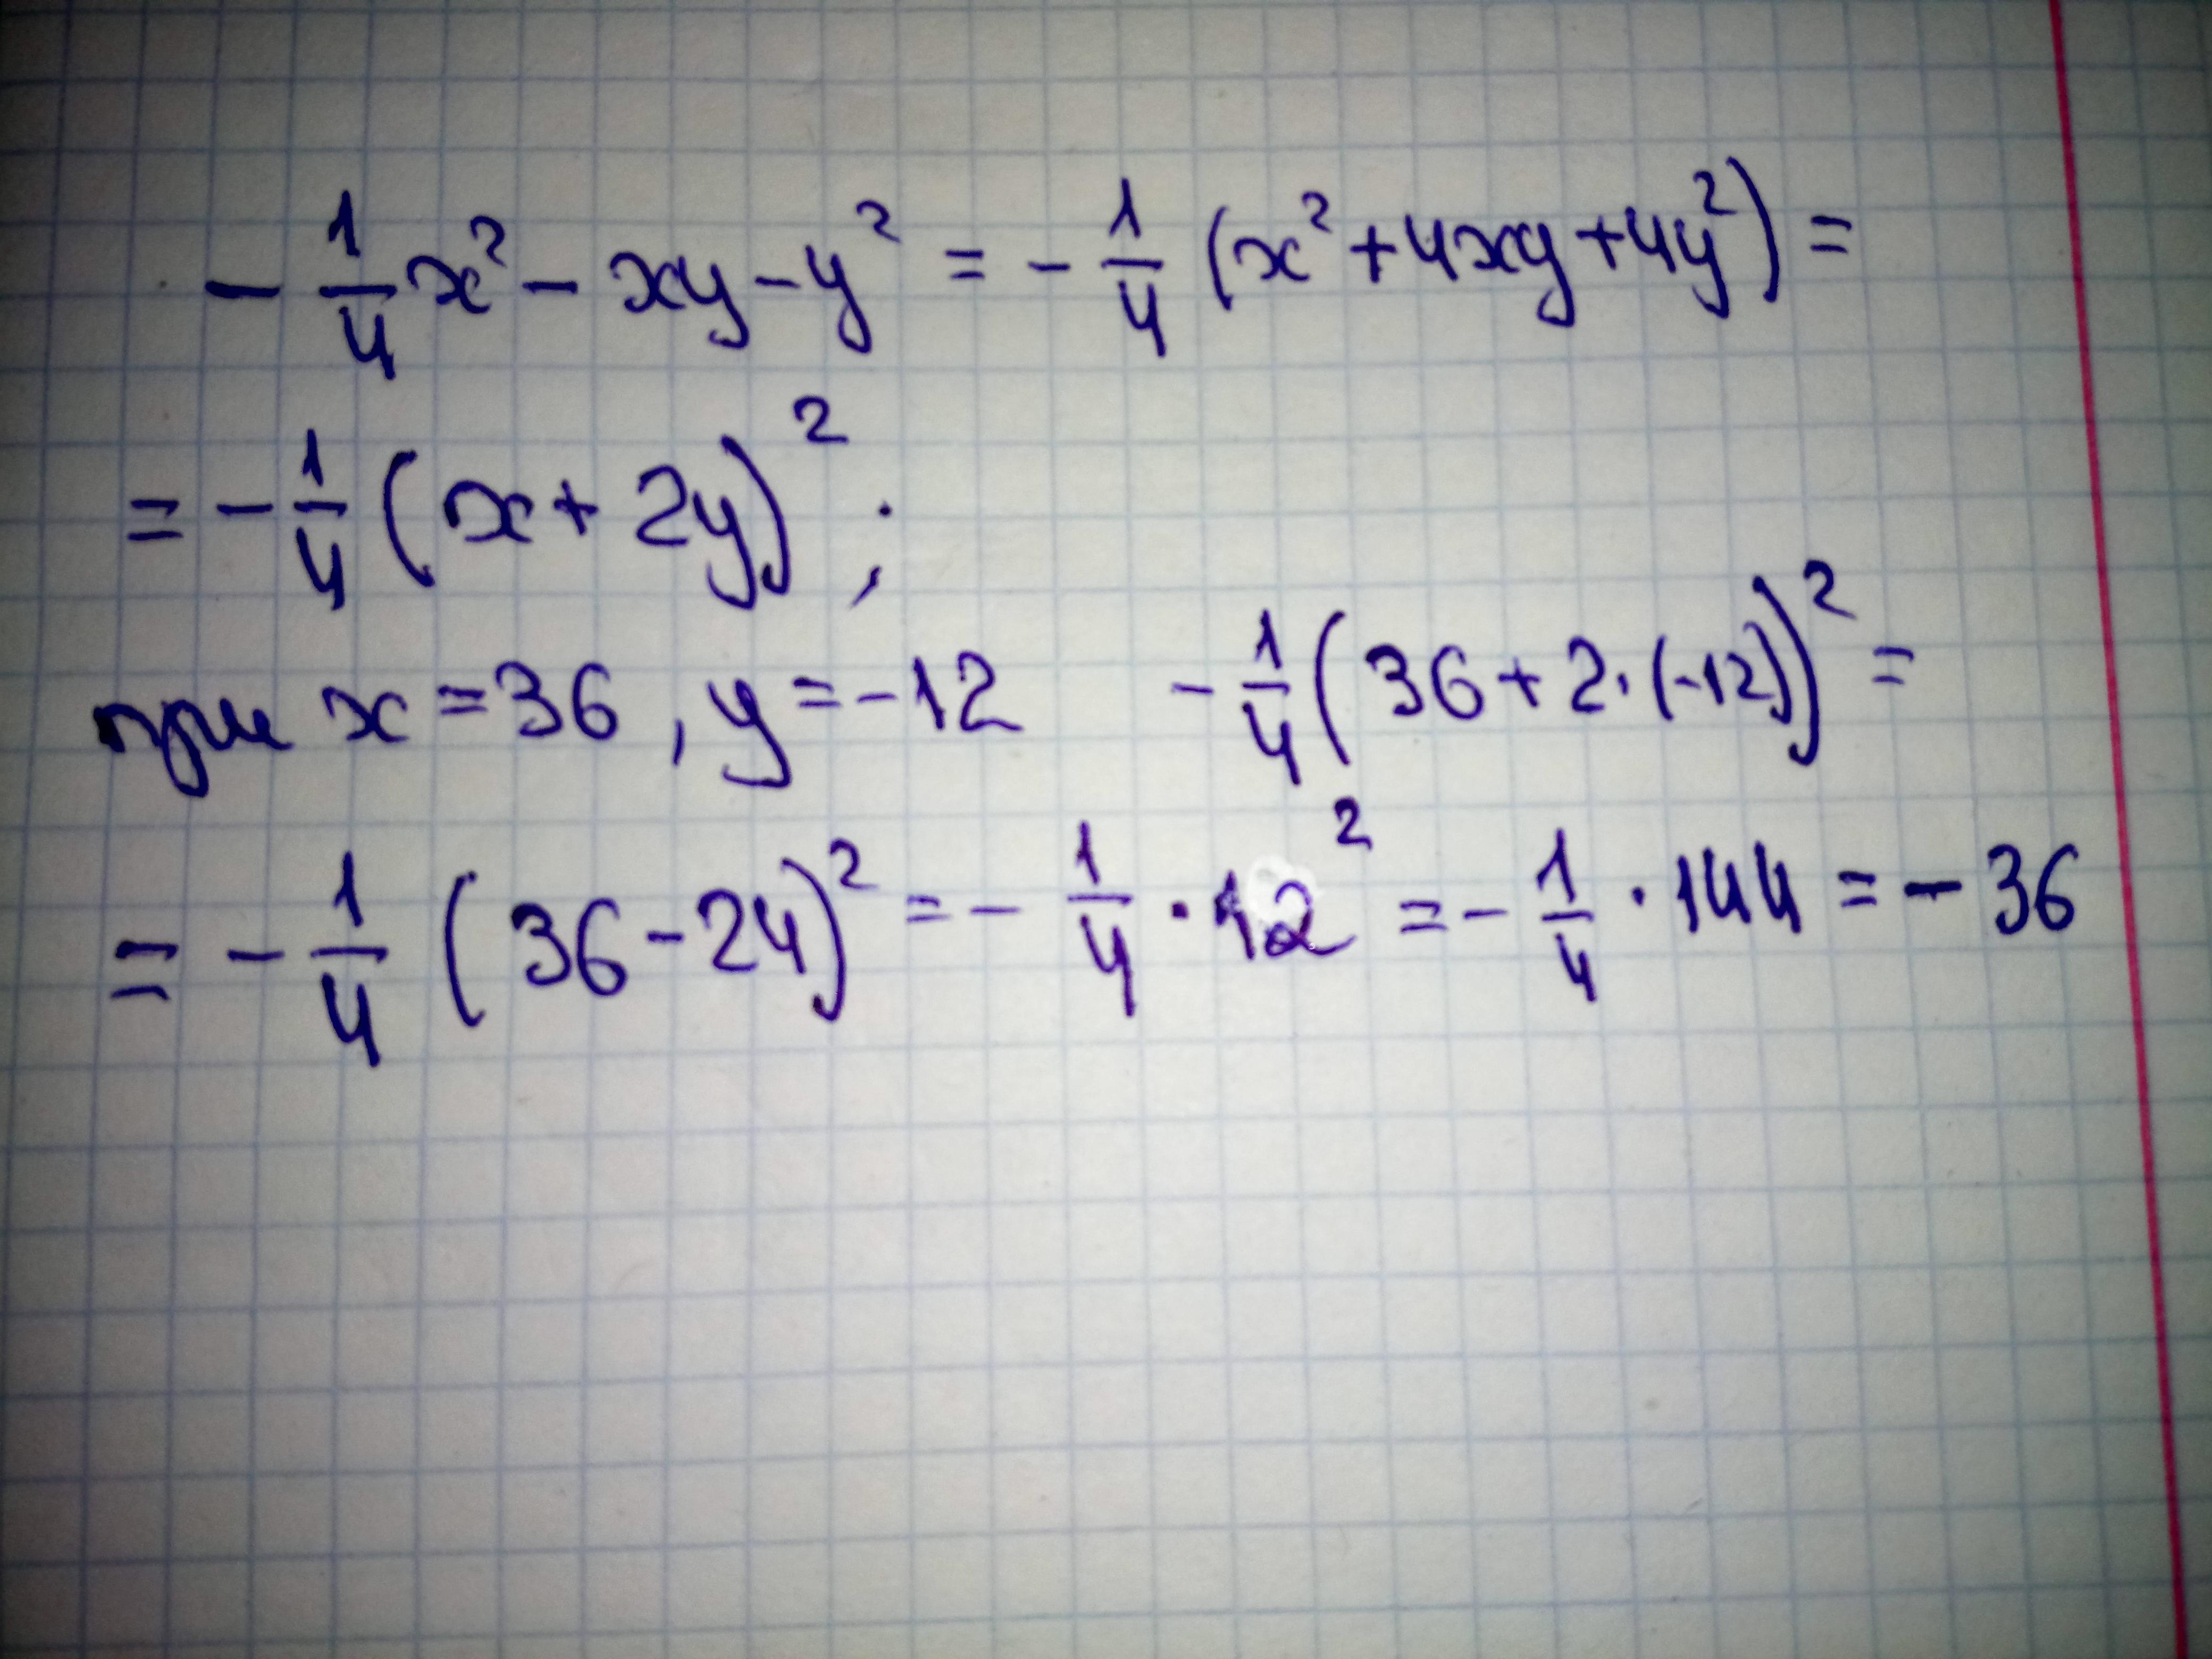 - 1/4 x² - xy - y² = - 1/4 (x² + 4xy + 4y²) =
= - 1/4 (x + 2y)² ;
при x = 36 , y = -12 - 1/4 (36 + 2 · (-12))² =
= - 1/4 (36 - 24)² = - 1/4 · 12² = - 1/4 · 144 = - 36